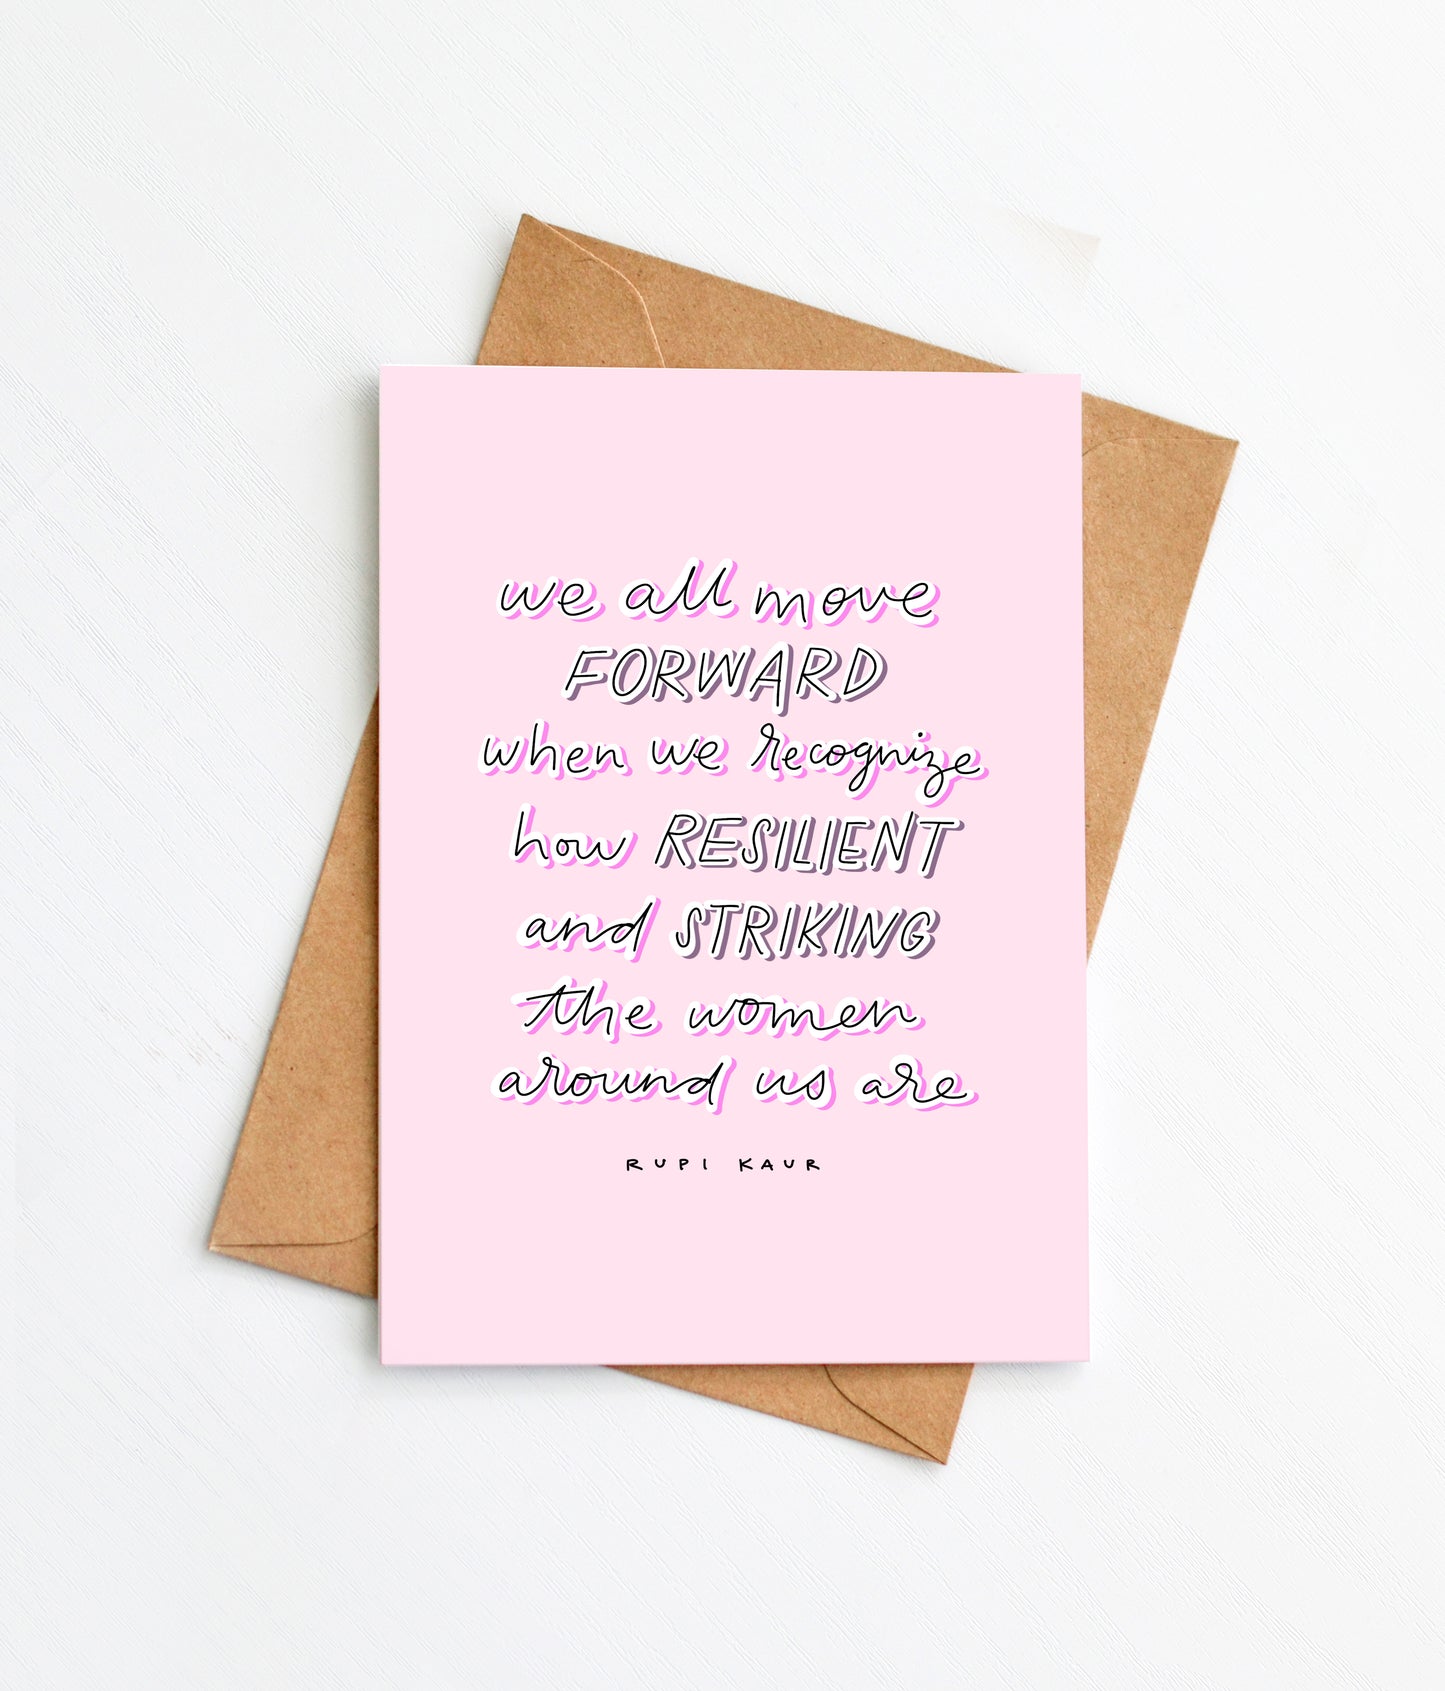 we all move
FORWARD
when we recognize
how RESILIENT
and STRIKING
the women
around us are
RUPI KAUR